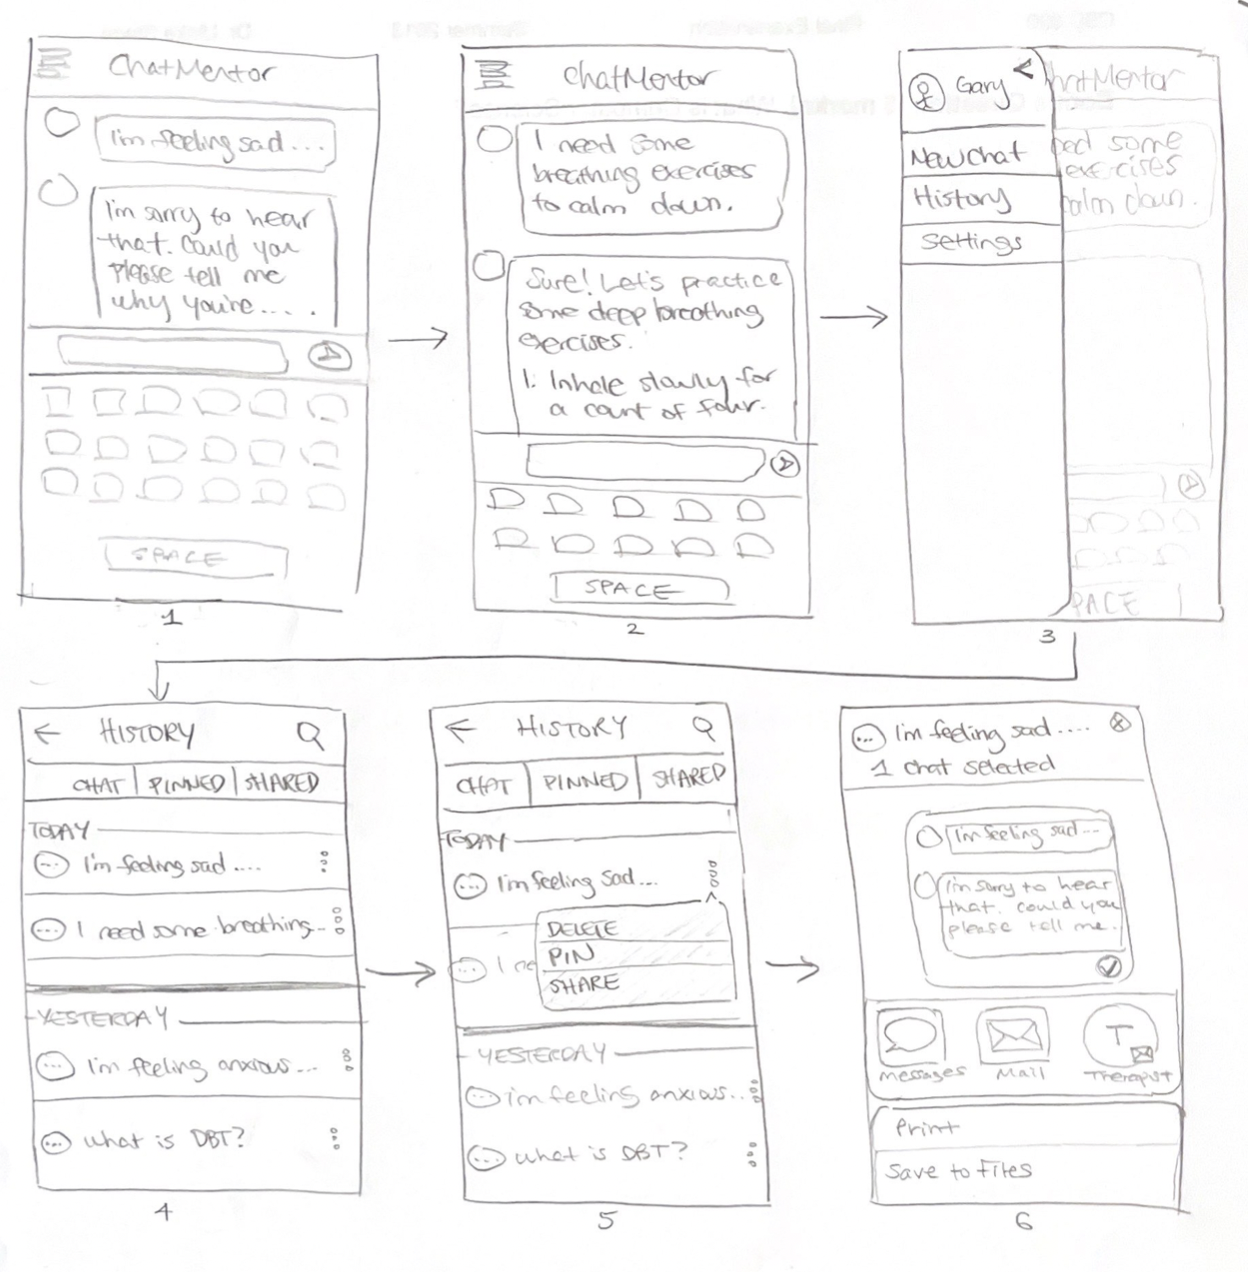 ChatMentor
I'm feeling sad...
I'm sorry to hear
that. Could you
please tell me
why you're.....
SPACE
1
ChatMentor
I need some
breathing exercises
to calm down.
Sure! Let's practice
some deep breathing
exercises.
1. Inhale slowly for
a count of four.
SPACE
2
Gary
hatMentor
New Chat
History
Settings
eed some
exercises
calm down.
PACE
3
HISTORY
CHAT PINNED SHARED
TODAY
I'm feeling sad....
I need some breathing...
YESTERDAY
I'm feeling anxious...
what is DBT?
4
HISTORY
CHAT PINNED SHARED
TODAY
I'm feeling sad...
I ne
DELETE
PIN
SHARE
YESTERDAY
i'm feeling anxious...
what is DBT?
5
I'm feeling sad....
1 chat selected
I'm feeling sad...
I'm sorry to hear
that. could you
please tell me.
T
Messages Mail Therapist
Print
Save to Files
6